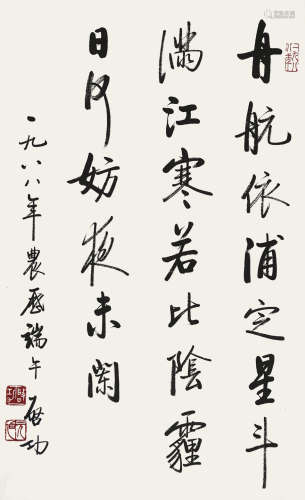 舟航依浦定星斗
滿江寒若比陰霾
日何妨夜未闌
一九八八年農歷端午 啓功